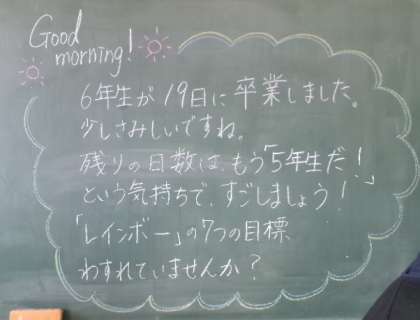 Good
morning!
6年生が19日に卒業しました。
少しさみしいですね。
残りの日数は、もう「5年生だ!」
という気持ちで、すごしましょう!
「レインボー」の7つの目標
わすれていませんか?